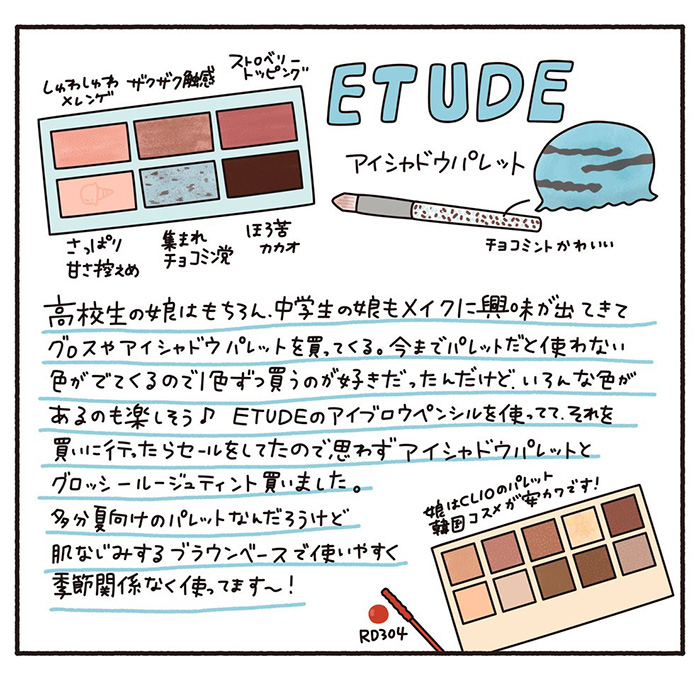 しゅわしゅわ
メレンゲ
ザクザク触感
ストロベリー
トッピング
ETUDE
アイシャドウパレット
さっぱり
甘さ控えめ
集まれ
チョコミン党
ほろ苦
カカオ
チョコミントかわいい
高校生の娘はもちろん、中学生の娘もメイクに興味が出てきて
グロスやアイシャドウパレットを買ってくる。今までパレットだと使わない
色がでてくるので1色ずつ買うのが好きだったんだけど、いろんな色が
あるのも楽しそう♪ ETUDEのアイブロウペンシルを使ってて、それを
買いに行ったらセールをしてたので、思わずアイシャドウパレットと
グロッシールージュティント買いました。
多分夏向けのパレットなんだろうけど
肌なじみするブラウンベースで使いやすく
季節関係なく使ってます〜!
娘はCLIOのパレット
韓国コスメが安カワです!
RD304